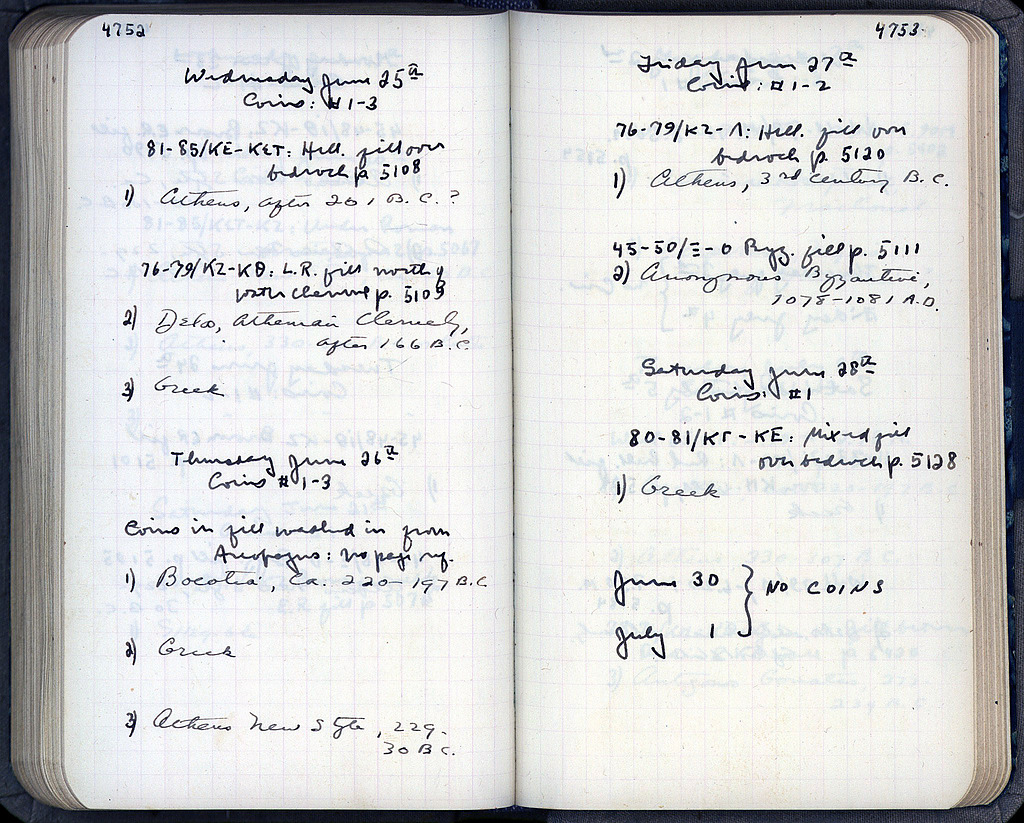 4752
Wednesday June 25th
Coins: #1-3
81-85/ΚΕ-ΚΣΤ: Hell. fill over
bedrock p. 5108
1) Athens, after 201 B.C.?
76-79/ΚΖ-ΚΘ: L.R. fill north of
water channel p. 5109
2) Delos, Athenian Cleruchy,
after 166 B.C.
3) Greek
Thursday June 26th
Coins #1-3
Coins in fill washed in from
Areopagus: no page ref.
1) Boeotia, Ca. 220-197 B.C
2) Greek
3) Athens New Style, 229-
30 B.C.
4753
Friday June 27th
Coins: #1-2
76-79/ΚΖ-Λ: Hell. fill over
bedrock p. 5120
1) Athens, 3rd century B.C.
45-50/Ξ-Ο Byz. fill p. 5111
2) Anonymous Byzantine,
1078-1081 A.D.
Saturday June 28th
Coins: #1
80-81/ΚΓ-ΚΕ: Mixed fill
over bedrock p. 5128
1) Greek
June 30
July 1 } NO COINS